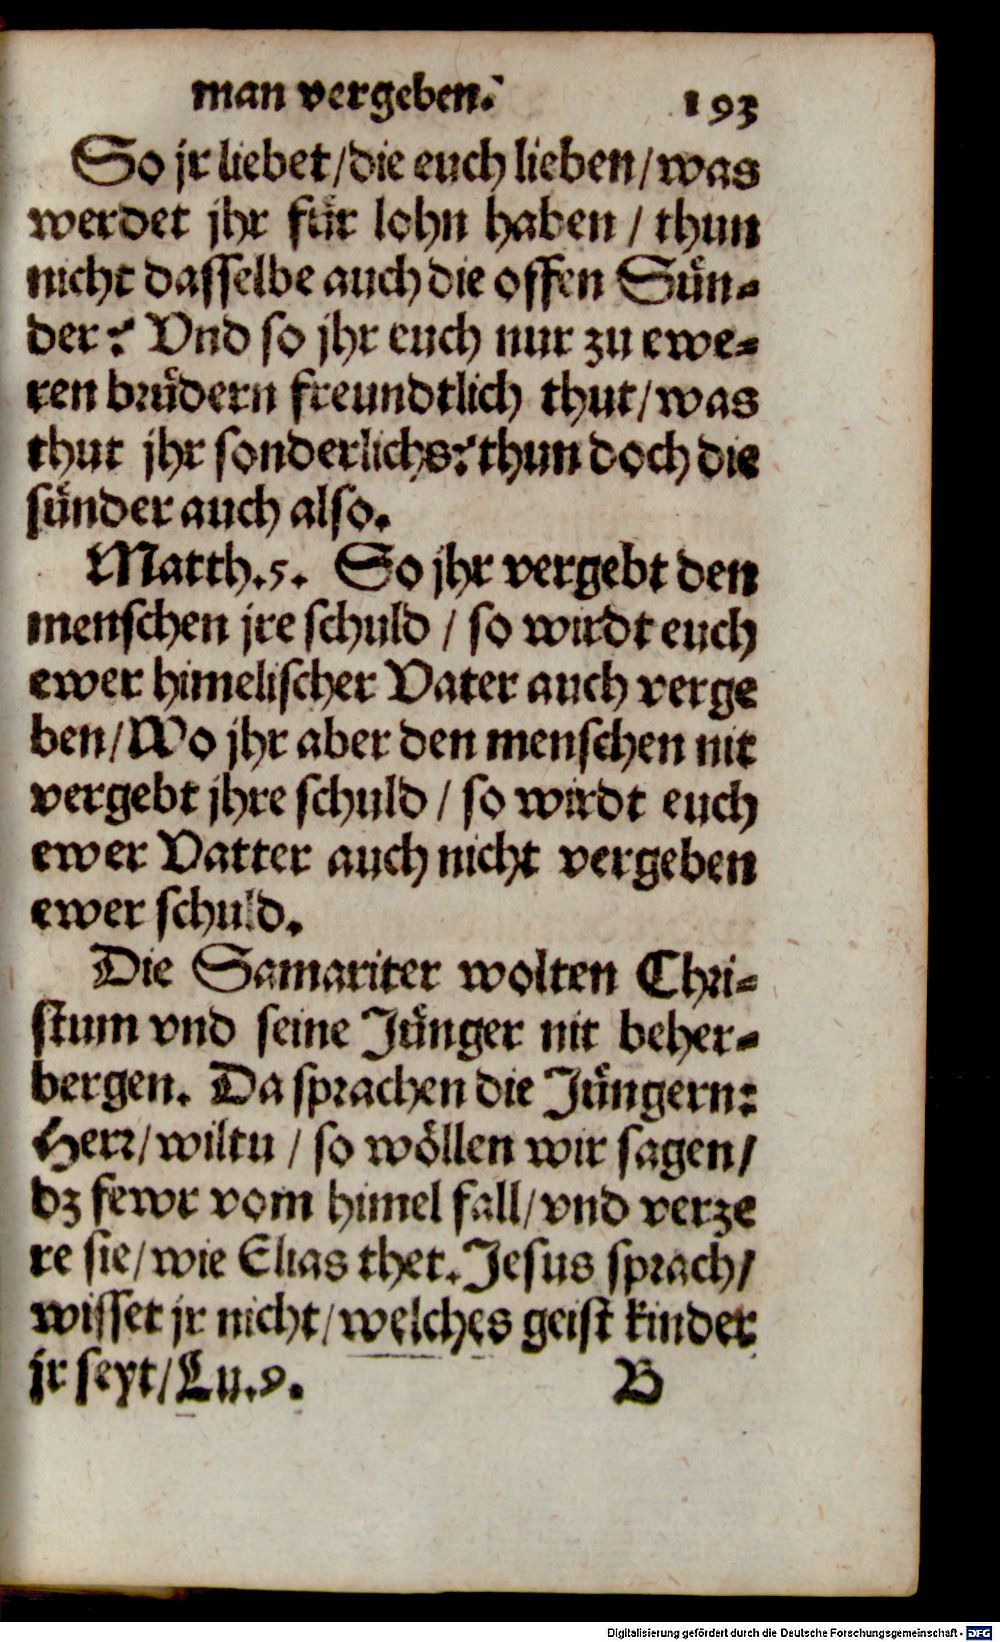 man vergeben. 193
So jr liebet/die euch lieben/was
werdet jhr für lohn haben / thun
nicht dasselbe auch die offen Sün-
der? Vnd so jhr euch nur zu ewe-
ren brüdern freundtlich thut/was
thut jhr sonderlichs? thun doch die
sünder auch also.
Matth.5. So jhr vergebt den
menschen jre schuld / so wirdt euch
ewer himelischer Vater auch verge
ben/Wo jhr aber den menschen nit
vergebt jhre schuld / so wirdt euch
ewer Vatter auch nicht vergeben
ewer schuld.
Die Samariter wolten Chri-
stum vnd seine Jünger nit beher-
bergen. Da sprachen die Jüngern:
Herr/wiltu / so wöllen wir sagen/
dz fewr vom himel fall/vnd verze
re sie/wie Elias thet. Jesus sprach/
wisset jr nicht/welches geist kinder
jr seyt/Lu.9. B
Digitalisierung gefördert durch die Deutsche Forschungsgemeinschaft - DFG